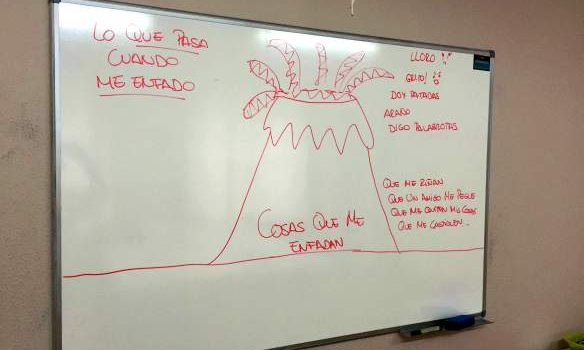 LO QUE PASA
CUANDO
ME ENFADO
LLORO
GRITO!
DOY PATADAS
ARAÑO
DIGO PALABROTAS
QUE ME RIÑAN
QUE UN AMIGO ME PEGUE
QUE ME QUITEN MIS COSAS
QUE ME CASTIGUEN...
COSAS QUE ME
ENFADAN